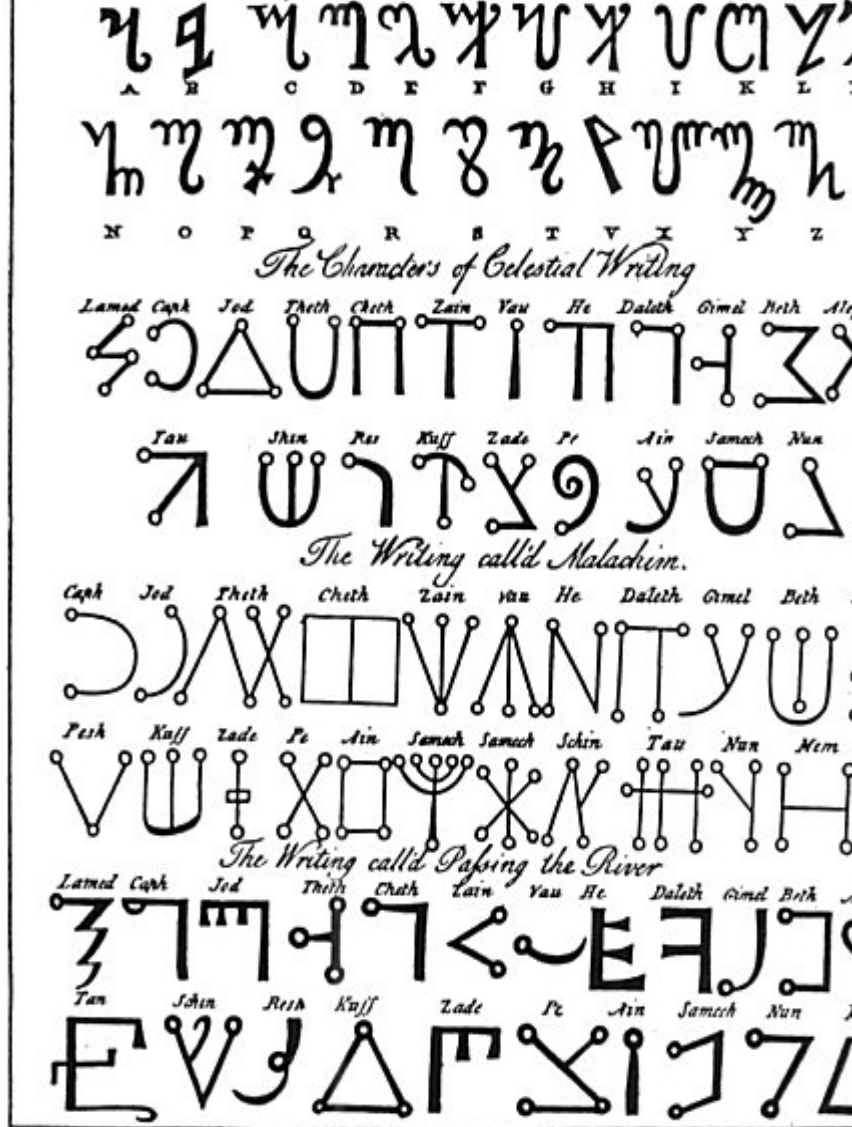 A B C D E F G H I K L
N O P Q R S T V X Y Z
The Characters of Celestial Writing
Lamed Caph Jod Theth Cheth Zain Vau He Daleth Gimel Beth
Tau Shin Res Kuff Zade Pe Ain Samech Nun
The Writing call'd Malachim.
Caph Jod Theth Cheth Zain Vau He Daleth Gimel Beth
Resh Kuff Zade Pe Ain Samech Samech Schin Tau Nun Mem
The Writing call'd Paſsing the River
Lamed Caph Jod Theth Cheth Zain Vau He Daleth Gimel Beth
Tau Schin Resh Kuff Zade Pe Ain Samech Nun